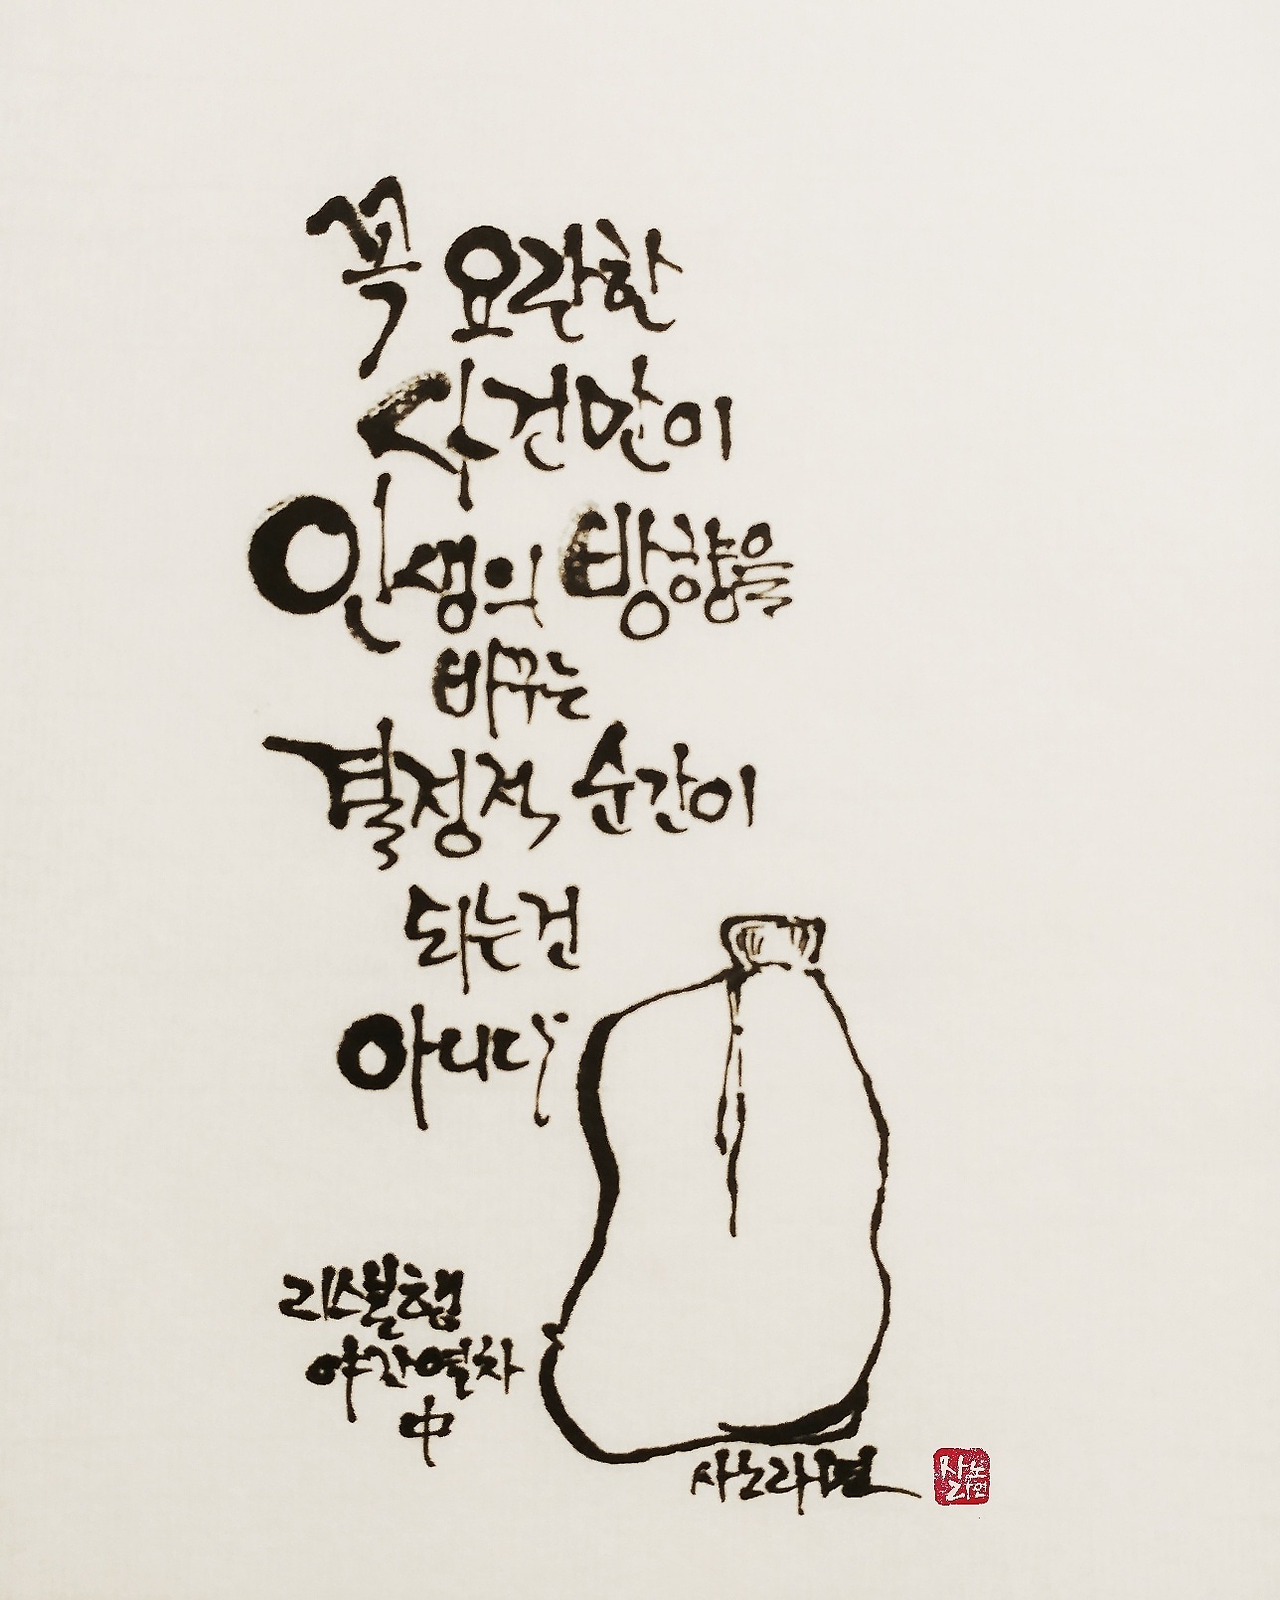 꼭 요란한
사건만이
인생의 방향을
바꾸는
결정적 순간이
되는건
아니다
리스본행
야간열차
中
사노라면
사노
라면